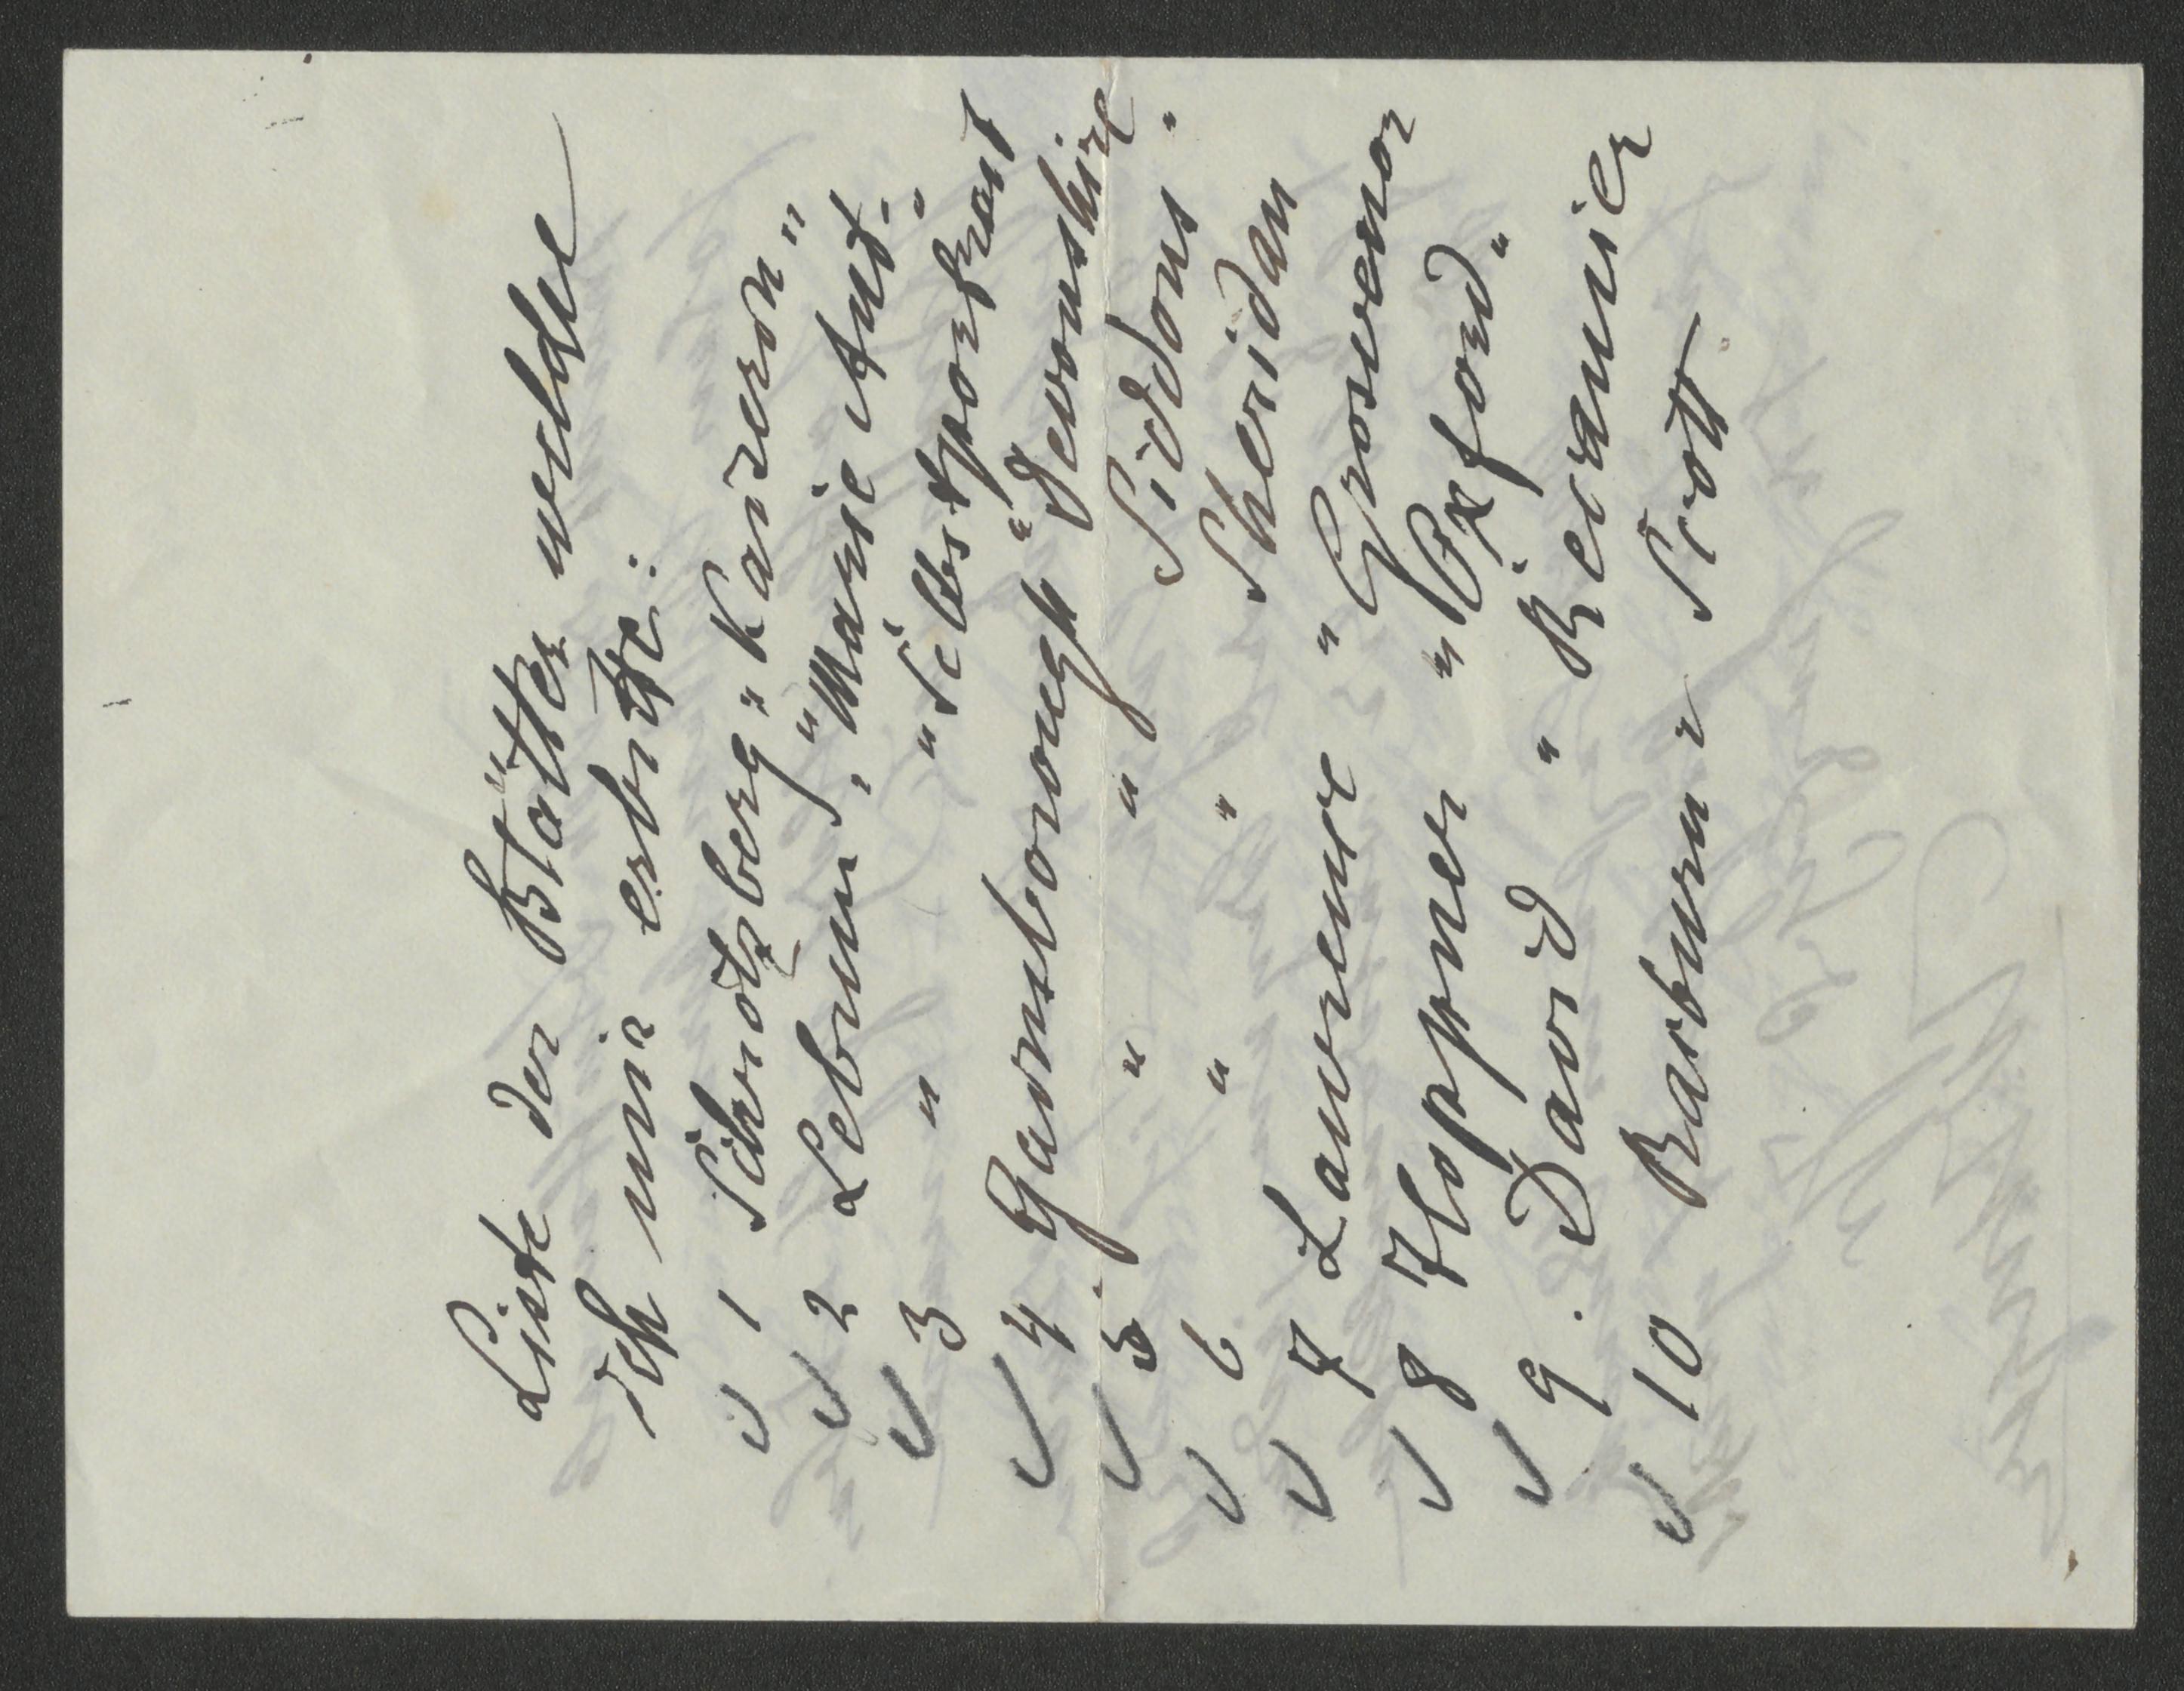 Liste der Blätter welche
ich mir erbitte:
1 Schrotzberg "Kaiserin"
2 Lebrun, "Marie Ant."
3 " "Selbstportrait
4. Gainsborough "Devonshire
5 " " Siddons"
6. " " Sheridan
7 Lawrence "Grosvenor
8 Hoppner "Oxford"
9. David "Recamier
10 Raeburn Scott